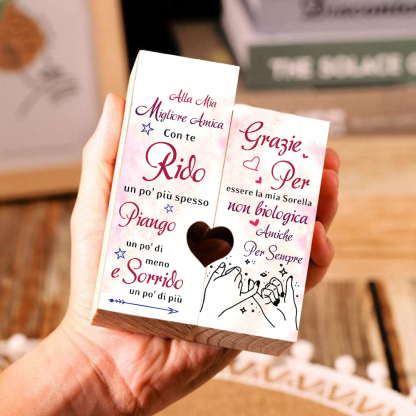 Alla Mia
Migliore Amica
Con te
Rido
un po' più spesso
Piango
un po' di
meno
e Sorrido
un po' di più
Grazie
Per
essere la mia Sorella
non biologica
Amiche
Per Sempre
THE SOLACE O